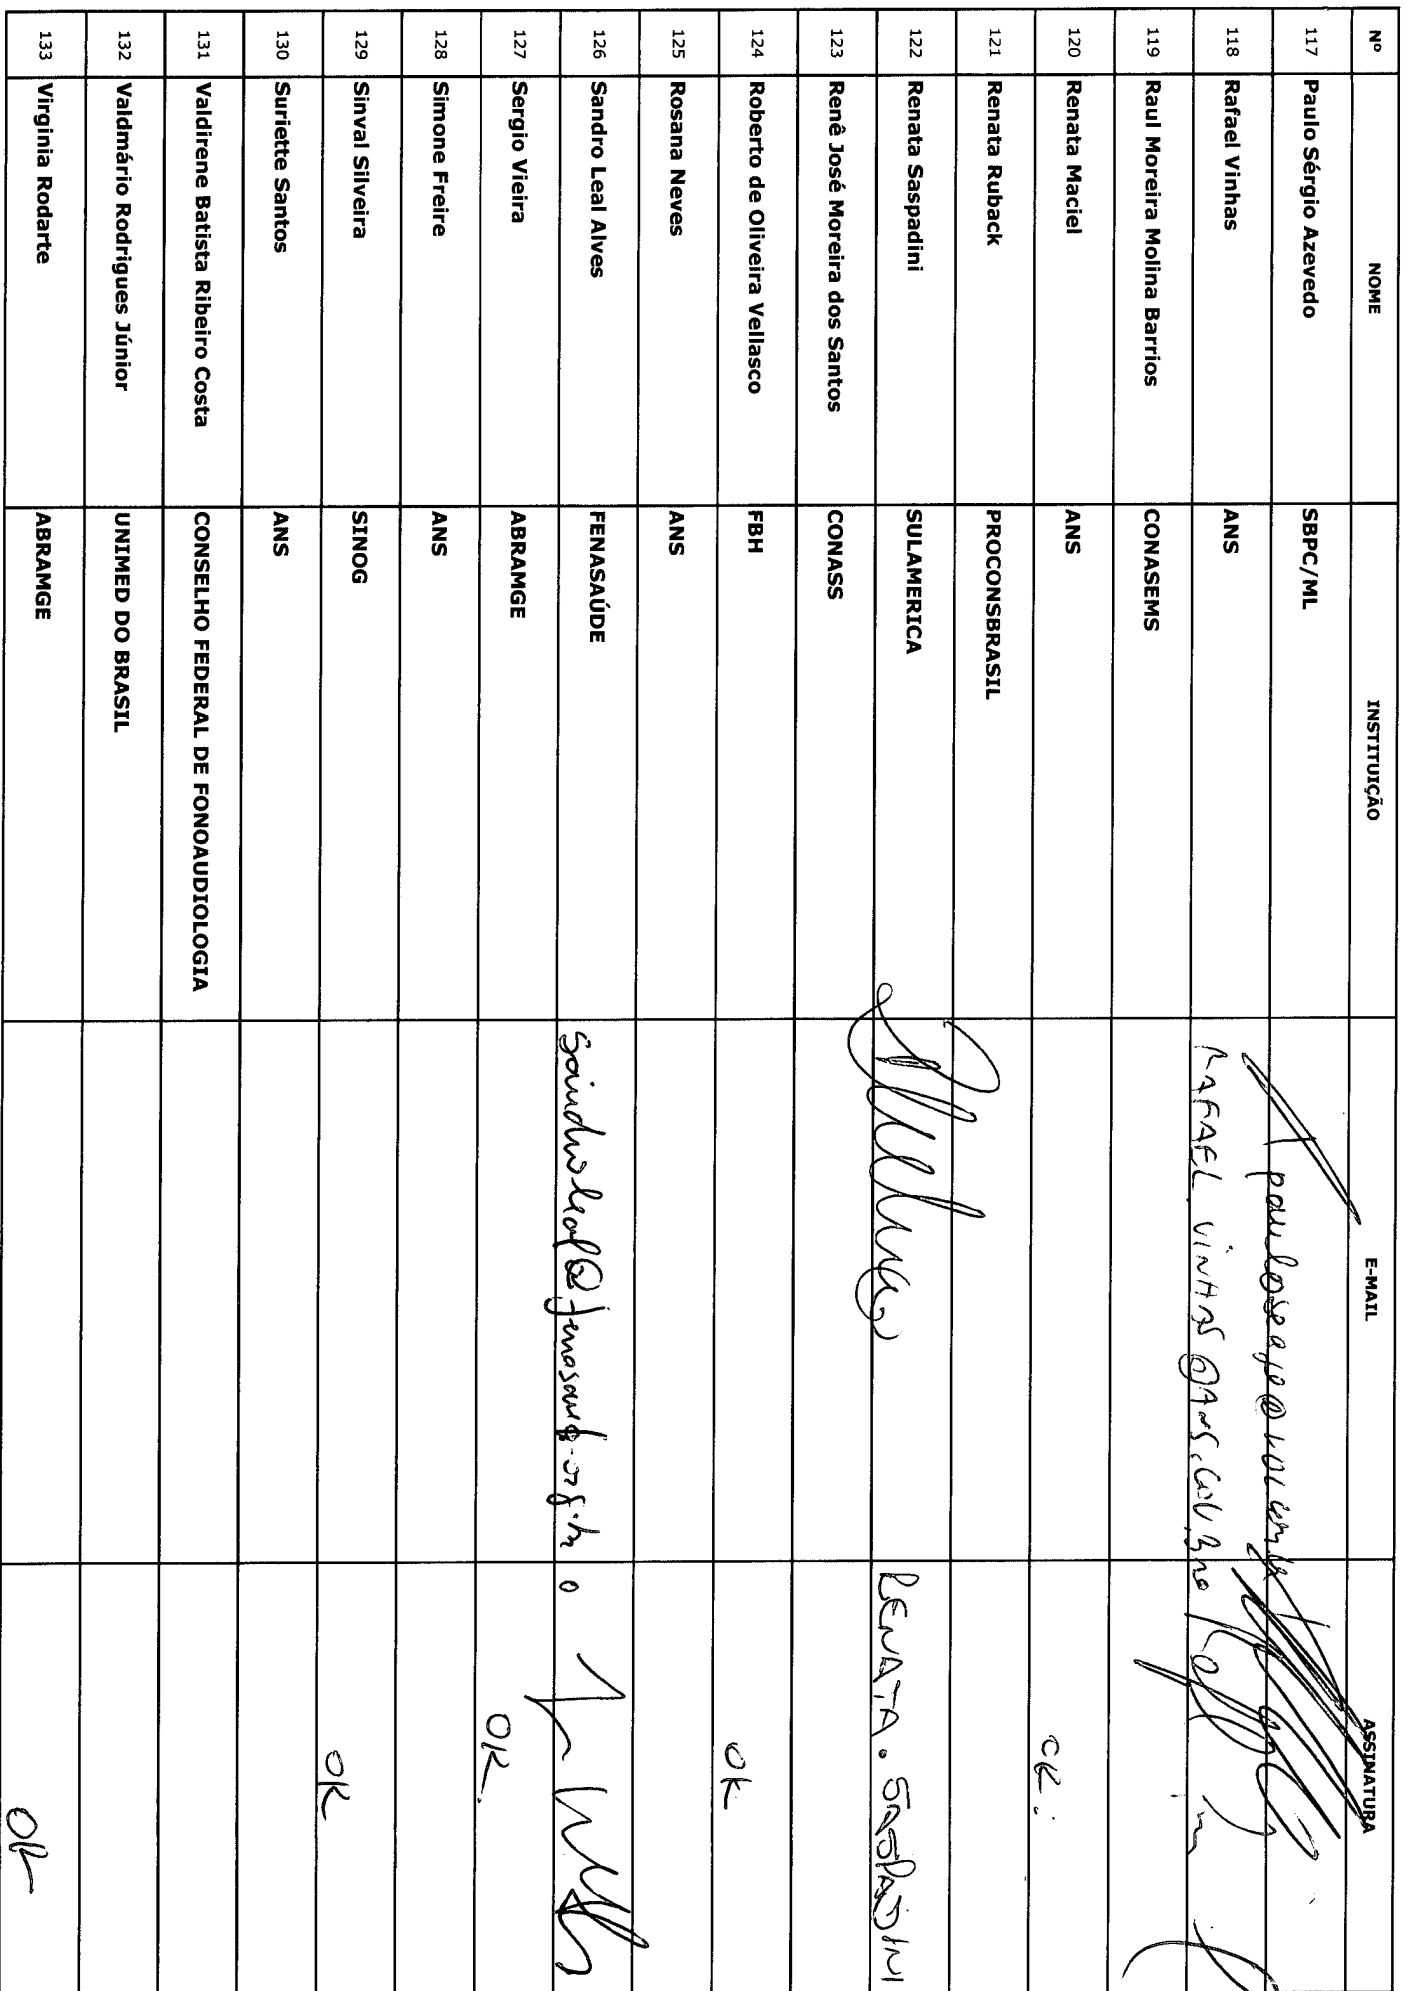 Nº NOME INSTITUIÇÃO E-MAIL ASSINATURA
117 Paulo Sérgio Azevedo SBPC/ML
118 Rafael Vinhas ANS RAFAEL.VINHAS@ANS.GOV.BR
119 Raul Moreira Molina Barrios CONASEMS
120 Renata Maciel ANS OK.
121 Renata Ruback PROCONSBRASIL
122 Renata Saspadini SULAMERICA RENATA. SASPADINI
123 Renê José Moreira dos Santos CONASS
124 Roberto de Oliveira Vellasco FBH OK
125 Rosana Neves ANS
126 Sandro Leal Alves FENASAÚDE
127 Sergio Vieira ABRAMGE OK.
128 Simone Freire ANS
129 Sinval Silveira SINOG OK
130 Suriette Santos ANS
131 Valdirene Batista Ribeiro Costa CONSELHO FEDERAL DE FONOAUDIOLOGIA
132 Valdmário Rodrigues Júnior UNIMED DO BRASIL
133 Virginia Rodarte ABRAMGE OK